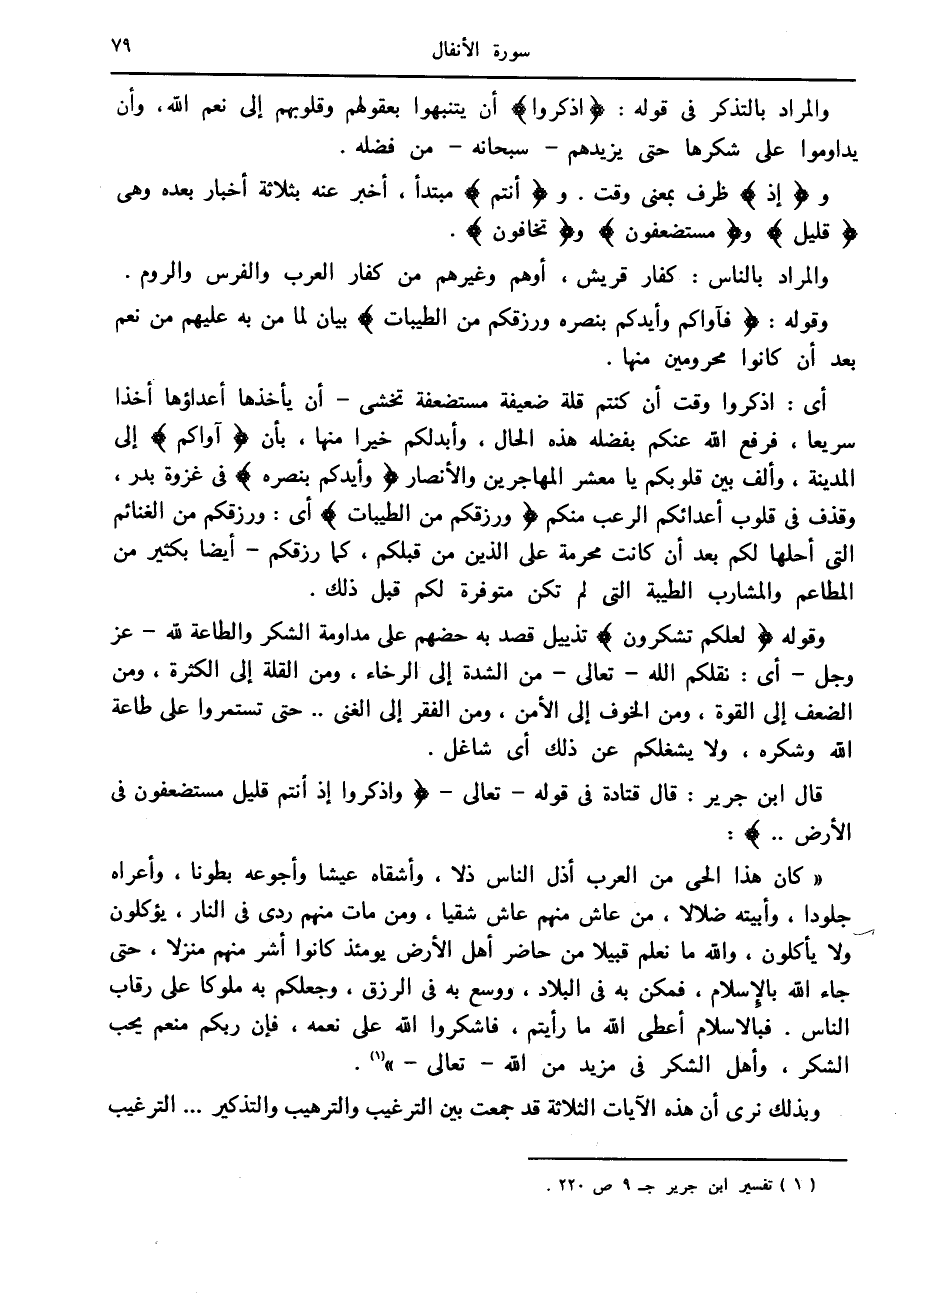 سورة الأنفال ٧٩
والمراد بالتذكر فى قوله : ﴿اذكروا﴾ أن يتنبهوا بعقولهم وقلوبهم إلى نعم الله، وأن
يداوموا على شكرها حتى يزيدهم – سبحانه – من فضله .
و ﴿ إذ ﴾ ظرف بمعنى وقت . و ﴿ أنتم ﴾ مبتدأ ، أخبر عنه بثلاثة أخبار بعده وهى
﴿ قليل ﴾ و﴿ مستضعفون ﴾ و﴿ تخافون ﴾ .
والمراد بالناس : كفار قريش ، أوهم وغيرهم من كفار العرب والفرس والروم .
وقوله : ﴿ فآواكم وأيدكم بنصره ورزقكم من الطيبات ﴾ بيان لما من به عليهم من نعم
بعد أن كانوا محرومين منها .
أى : اذكروا وقت أن كنتم قلة ضعيفة مستضعفة تخشى – أن يأخذها أعداؤها أخذا
سريعا ، فرفع الله عنكم بفضله هذه الحال ، وأبدلكم خيرا منها ، بأن ﴿ آواكم ﴾ إلى
المدينة ، وألف بين قلوبكم يا معشر المهاجرين والأنصار ﴿ وأيدكم بنصره ﴾ فى غزوة بدر ،
وقذف فى قلوب أعدائكم الرعب منكم ﴿ ورزقكم من الطيبات ﴾ أى : ورزقكم من الغنائم
التى أحلها لكم بعد أن كانت محرمة على الذين من قبلكم ، كما رزقكم – أيضا بكثير من
المطاعم والمشارب الطيبة التى لم تكن متوفرة لكم قبل ذلك .
وقوله ﴿ لعلكم تشكرون ﴾ تذييل قصد به حضهم على مداومة الشكر والطاعة لله – عز
وجل – أى : نقلكم الله – تعالى – من الشدة إلى الرخاء ، ومن القلة إلى الكثرة ، ومن
الضعف إلى القوة ، ومن الخوف إلى الأمن ، ومن الفقر إلى الغنى .. حتى تستمروا على طاعة
الله وشكره ، ولا يشغلكم عن ذلك أى شاغل .
قال ابن جرير : قال قتادة فى قوله – تعالى – ﴿ واذكروا إذ أنتم قليل مستضعفون فى
الأرض .. ﴾ :
« كان هذا الحى من العرب أذل الناس ذلا ، وأشقاه عيشا وأجوعه بطونا ، وأعراه
جلودا ، وأبيته ضلالا ، من عاش منهم عاش شقيا ، ومن مات منهم ردى فى النار ، يؤكلون
ولا يأكلون ، والله ما نعلم قبيلا من حاضر أهل الأرض يومئذ كانوا أشر منهم منزلا ، حتى
جاء الله بالإسلام ، فمكن به فى البلاد ، ووسع به فى الرزق ، وجعلكم به ملوكا على رقاب
الناس . فبالاسلام أعطى الله ما رأيتم ، فاشكروا الله على نعمه ، فإن ربكم منعم يحب
الشكر ، وأهل الشكر فى مزيد من الله – تعالى – »(١) .
وبذلك نرى أن هذه الآيات الثلاثة قد جمعت بين الترغيب والترهيب والتذكير ... الترغيب
( ١ ) تفسير ابن جرير جـ ٩ ص ٢٢٠ .